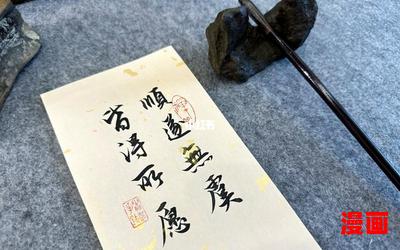 順遂無虞
皆得所愿
漫画